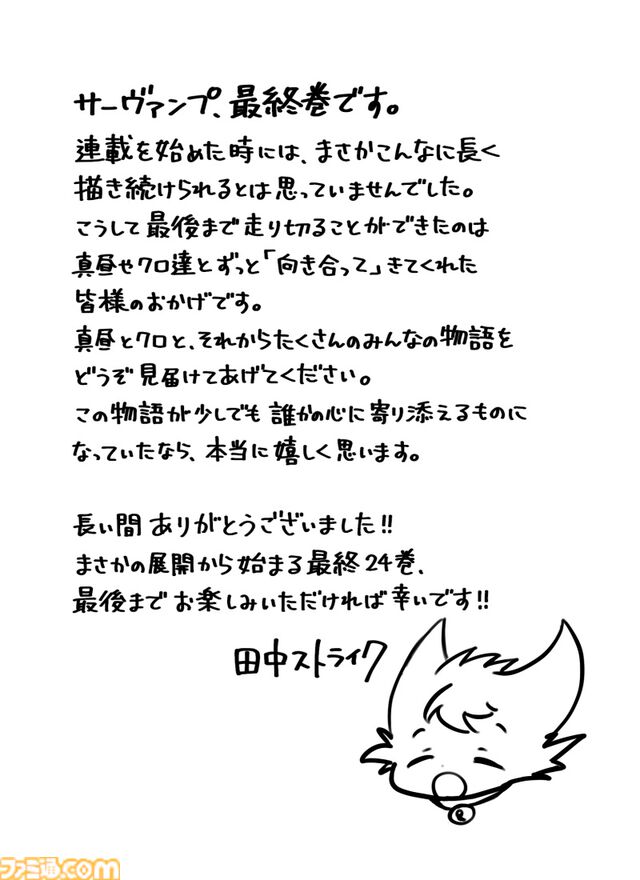 サーヴァンプ、最終巻です。
連載を始めた時には、まさかこんなに長く
描き続けられるとは思っていませんでした。
こうして最後まで走り切ることができたのは
真昼やクロ達とずっと「向き合って」きてくれた
皆様のおかげです。
真昼とクロと、それからたくさんのみんなの物語を
どうぞ見届けてあげてください。
この物語が少しでも誰かの心に寄り添えるものに
なっていたなら、本当に嬉しく思います。
長い間ありがとうございました!!
まさかの展開から始まる最終24巻、
最後までお楽しみいただければ幸いです!!
田中ストライク
ファミ通.com